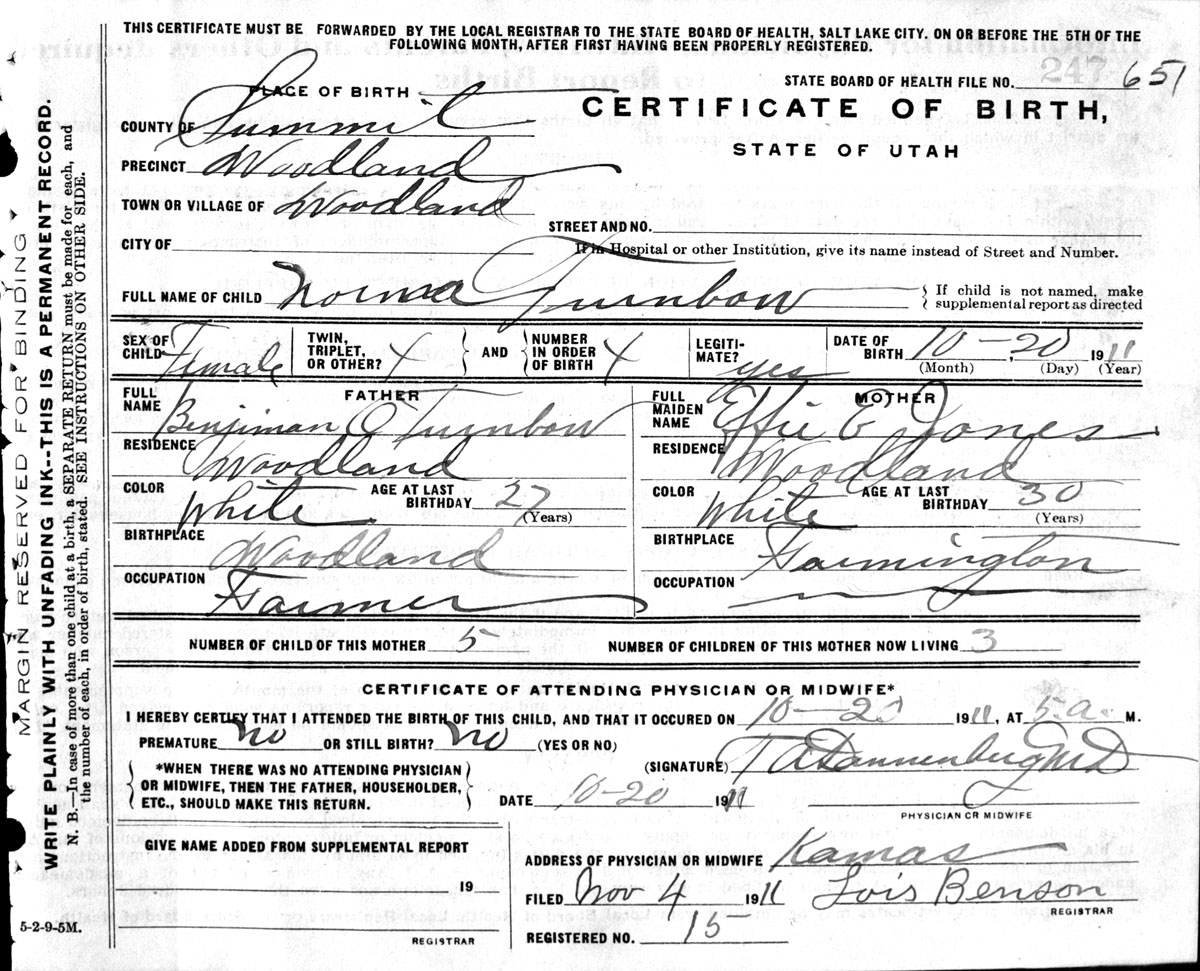 THIS CERTIFICATE MUST BE FORWARDED BY THE LOCAL REGISTRAR TO THE STATE BOARD OF HEALTH, SALT LAKE CITY. ON OR BEFORE THE 5TH OF THE
FOLLOWING MONTH, AFTER FIRST HAVING BEEN PROPERLY REGISTERED.
STATE BOARD OF HEALTH FILE NO. 247 651
PLACE OF BIRTH
CERTIFICATE OF BIRTH,
COUNTY OF Summit
STATE OF UTAH
PRECINCT Woodland
TOWN OR VILLAGE OF Woodland
STREET AND NO.
CITY OF
If in Hospital or other Institution, give its name instead of Street and Number.
FULL NAME OF CHILD Norma Turnbow { If child is not named, make
supplemental report as directed
SEX OF CHILD Female TWIN, TRIPLET, OR OTHER? { AND } NUMBER IN ORDER OF BIRTH LEGITI-MATE? yes DATE OF BIRTH 10-20 1911
(Month) (Day) (Year)
FATHER MOTHER
FULL NAME Benjiman O Turnbow FULL MAIDEN NAME Effie E Jones
RESIDENCE Woodland RESIDENCE Woodland
COLOR White AGE AT LAST BIRTHDAY 27 (Years) COLOR White AGE AT LAST BIRTHDAY 30 (Years)
BIRTHPLACE Woodland BIRTHPLACE Farmington
OCCUPATION Farmer OCCUPATION
NUMBER OF CHILD OF THIS MOTHER 5 NUMBER OF CHILDREN OF THIS MOTHER NOW LIVING 3
CERTIFICATE OF ATTENDING PHYSICIAN OR MIDWIFE*
I HEREBY CERTIFY THAT I ATTENDED THE BIRTH OF THIS CHILD, AND THAT IT OCCURED ON 10-20 1911, AT 5.a. M.
PREMATURE No OR STILL BIRTH? No (YES OR NO)
(SIGNATURE) T A Dannenberg MD
PHYSICIAN OR MIDWIFE
*WHEN THERE WAS NO ATTENDING PHYSICIAN
OR MIDWIFE, THEN THE FATHER, HOUSEHOLDER,
ETC., SHOULD MAKE THIS RETURN.
DATE 10-20 1911
GIVE NAME ADDED FROM SUPPLEMENTAL REPORT
19
REGISTRAR
ADDRESS OF PHYSICIAN OR MIDWIFE Kamas
FILED Nov 4 1911 Lois Benson
REGISTRAR
REGISTERED NO. 15
5-2-9-5M.
MARGIN RESERVED FOR BINDING
WRITE PLAINLY WITH UNFADING INK--THIS IS A PERMANENT RECORD.
N. B.—In case of more than one child at a birth, a SEPARATE RETURN must be made for each, and
the number of each, in order of birth, stated. SEE INSTRUCTIONS ON OTHER SIDE.